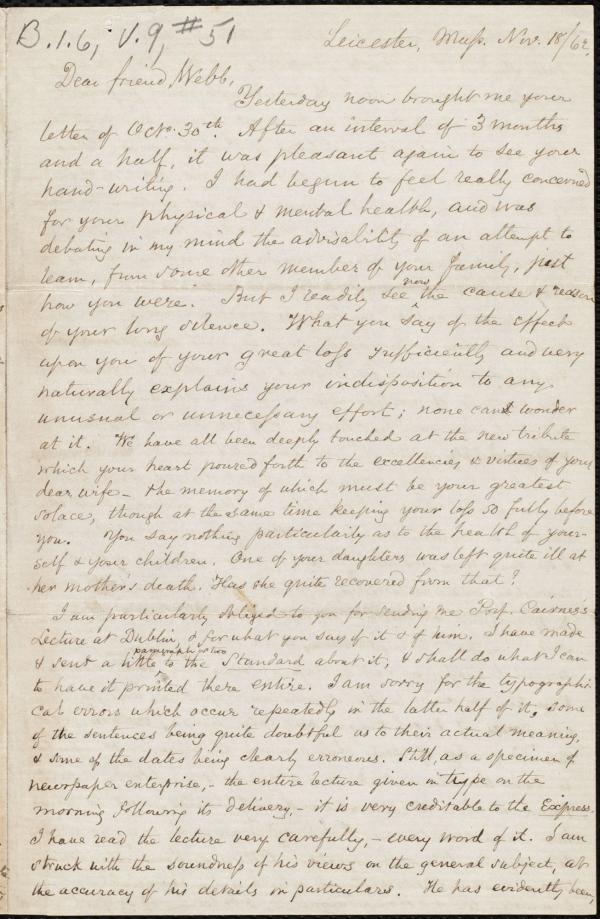 B.1.6, V.9, #51
Leicester, Mass. Nov. 18/62.
Dear friend Webb,
Yesterday noon brought me your
letter of Octo. 30th. After an interval of 3 months
and a half, it was pleasant again to see your
hand-writing. I had begun to feel really concerned
for your physical & mental health, and was
debating in my mind the advisability of an attempt to
learn, from some other member of your family, just
how you were. But I readily see now the cause & reason
of your long silence. What you say of the effect
upon you of your great loss sufficiently and very
naturally explains your indisposition to any
unusual or unnecessary effort; none can wonder
at it. We have all been deeply touched at the new tribute
which your heart poured forth to the excellencies & virtues of your
dear wife - the memory of which must be your greatest
solace, though at the same time keeping your loss so fully before
you. You say nothing particularly as to the health of your-
self & your children. One of your daughters was left quite ill at
her mother's death. Has she quite recovered from that?
I am particularly obliged to you for sending me Prof. Cairnes's
Lecture at Dublin, & for what you say of it & of him. I have made
& sent a little paragraph or two to the Standard about it, & shall do what I can
to have it printed there entire. I am sorry for the typographi-
cal errors which occur repeatedly in the latter half of it, some
of the sentences being quite doubtful as to their actual meaning,
& some of the dates being clearly erroneous. Still, as a specimen of
newspaper enterprise, - the entire lecture given in type on the
morning following its delivery, - it is very creditable to the Express.
I have read the lecture very carefully, - every word of it. I am
struck with the soundness of his views on the general subject, at
the accuracy of his details in particulars. He has evidently been,